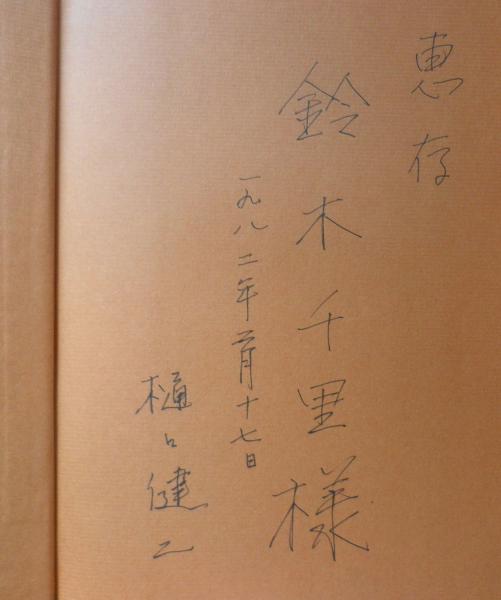 恵存
鈴木千里様
一九八二年二月十七日
樋口健二